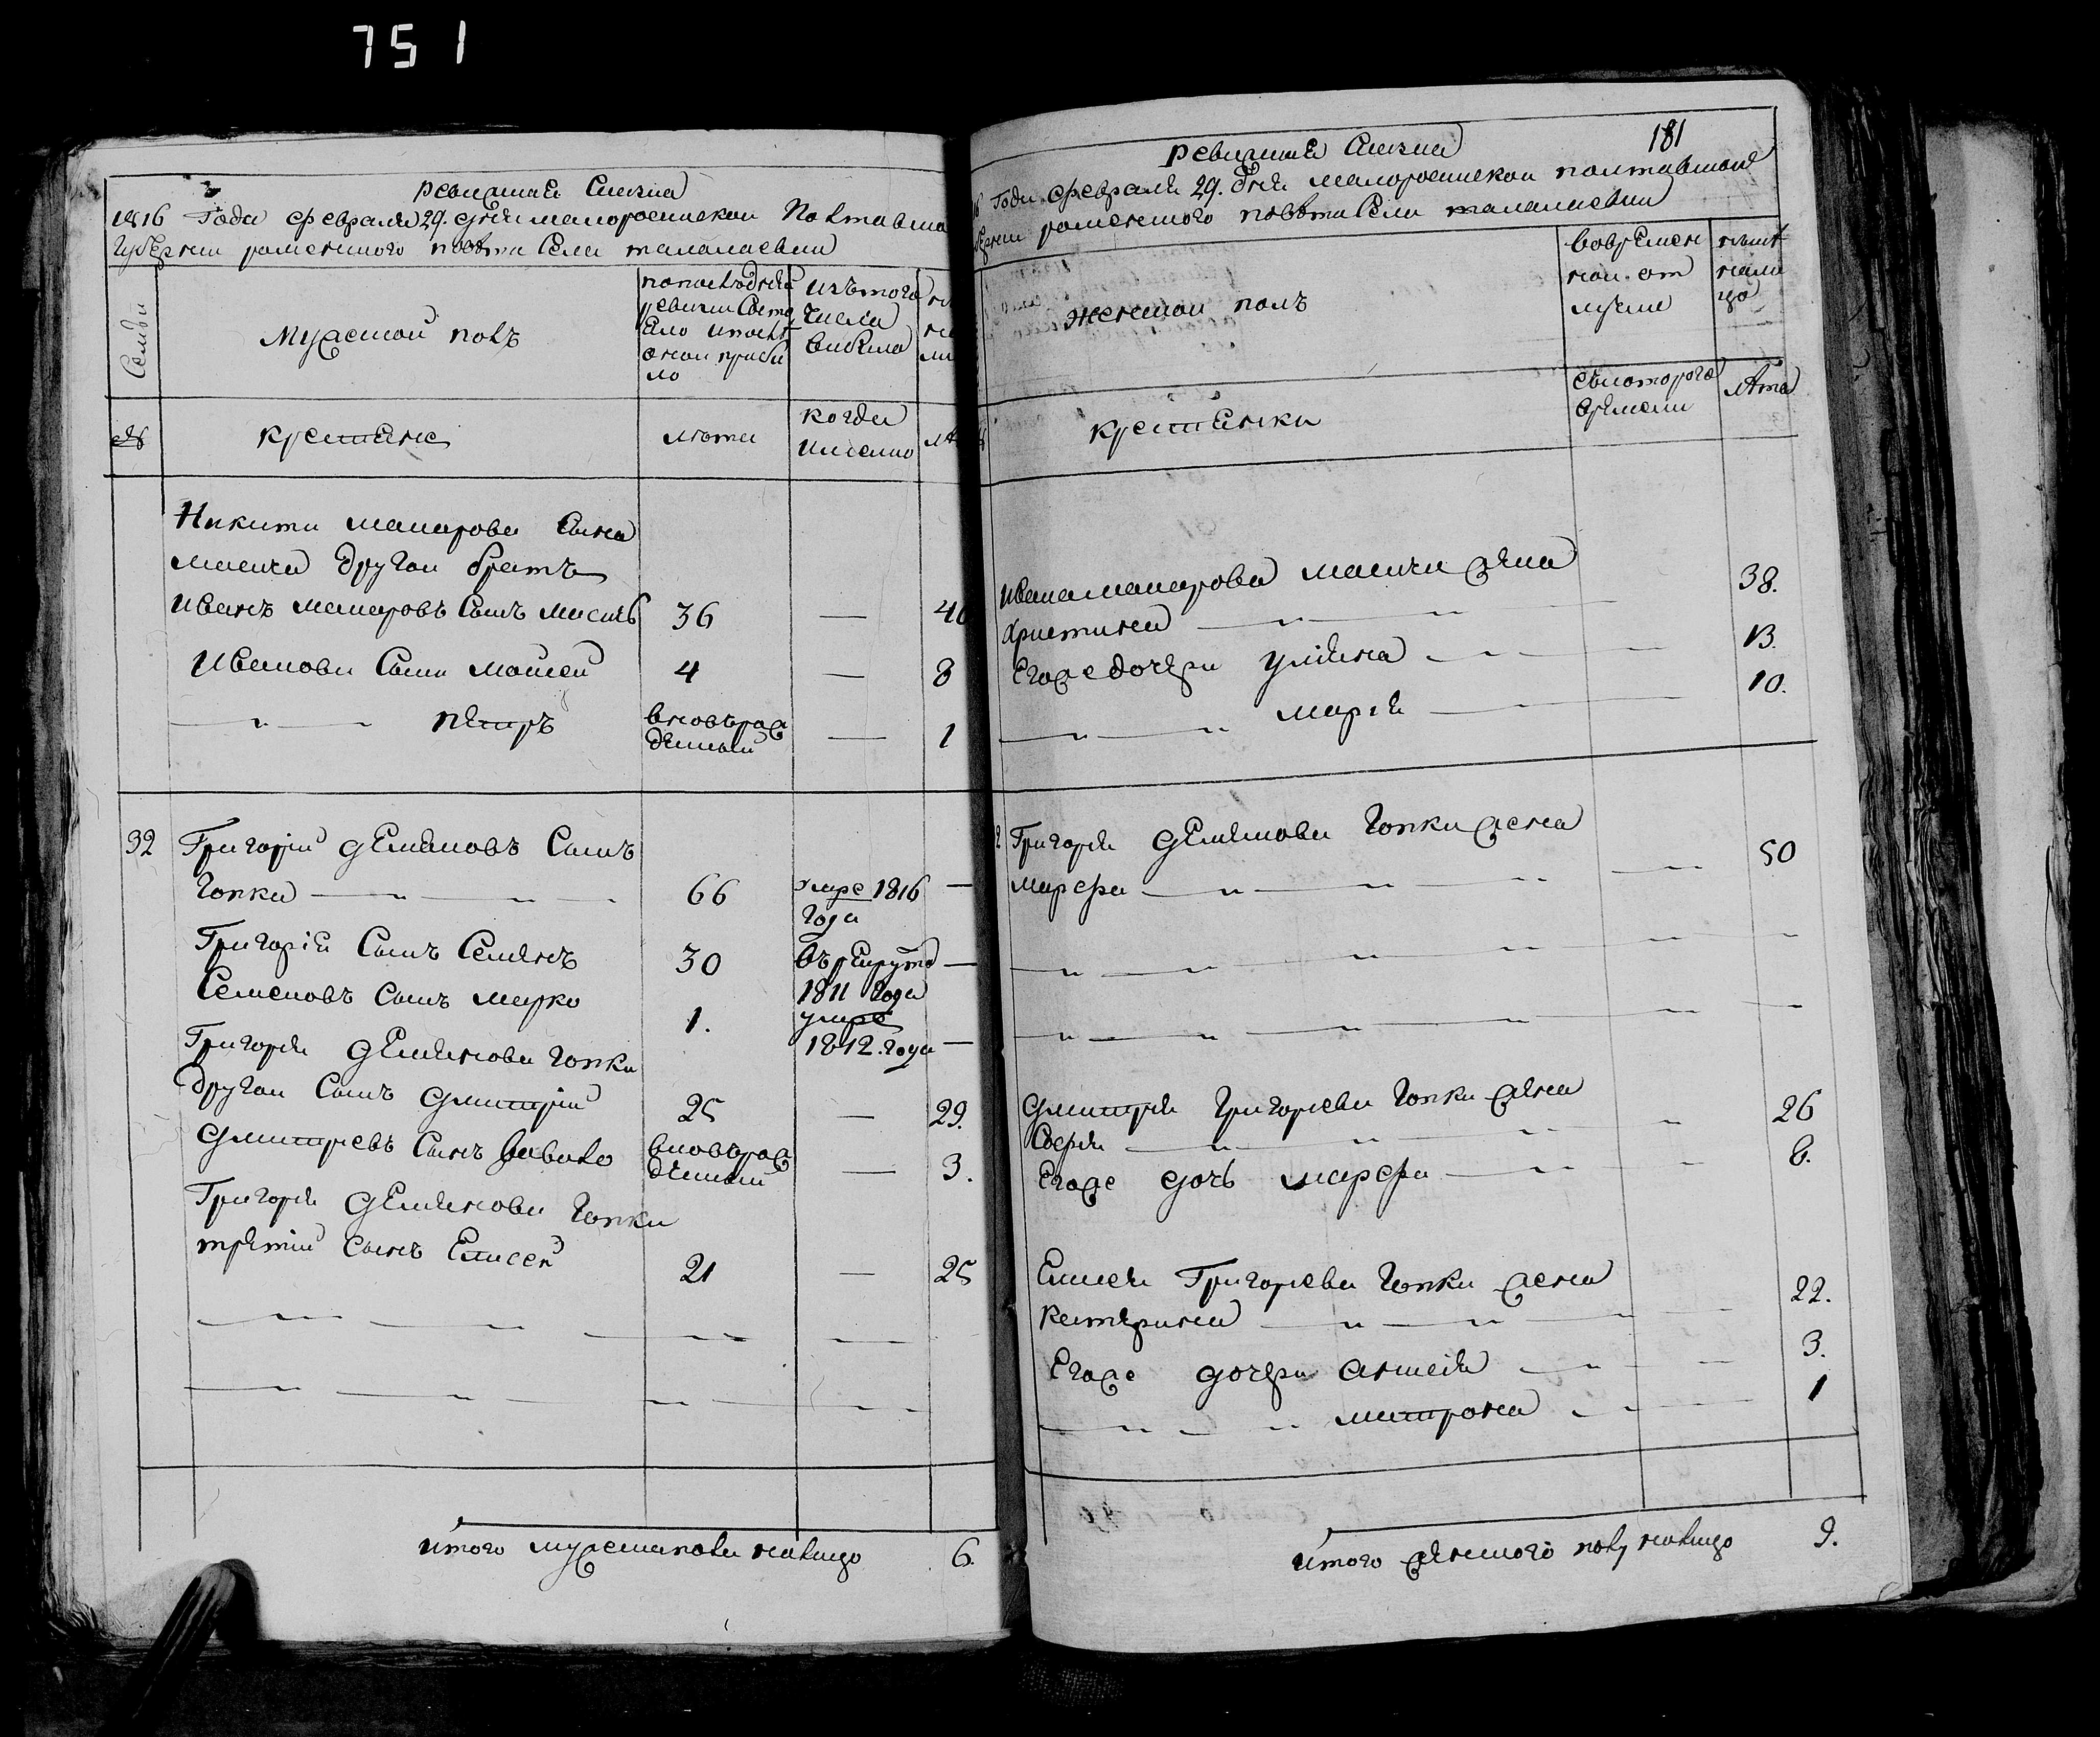 751
Ревизская Сказка
1816 Года февраля 29. дня малороссийской Полтавско
Губернии роменского повета Села талалаевки
Семьи
Мужеской полъ
попоследней ревизии состояло и после оной прибыло
изътого числа выбыло
№
крестьяне
лета
когда именно
Никиты макарова сына
другой братъ
Иванъ макаровъ сынъ 36 — 40
Ивановы сыны мойсей 4 — 8
— " — петръ вновьрожденный — 1
32 Григорий демяновъ сынъ
Гопка — " — 66 умре 1816 года —
Григория сынъ Семенъ 30 въ рекруты 1811 года —
Семеновъ сынъ марко 1. умре 1812. года —
Григория демянова Гопки
другой сынъ дмитрий 25 — 29.
дмитриевъ сынъ вновьрожденный — 3.
Григория демянова Гопки
третий сынъ Елисей 21 — 25
итого мужеска пола налицо 6.
Ревизская Сказка
181
Года февраля 29. дня малороссийской полтавской
роменского повета Села талалаевки
женской полъ
вовременной отлучке
ныне налицо
крестьянки
скоторого времени
лета
Ивана макарова жена
христина — " — 38.
Егоже дочери улияна — " — 13.
— " — мария — 10.
Григория демянова Гопки жена
марфа — " — 50
дмитрия Григориева Гопки жена
— " — 26
Егоже дочь марфа — " — 8.
Елисея Григориева Гопки жена
катерина — " — 22.
Егоже дочери — " — 3.
— " — матрона — " — 1
итого женского полу налицо 9.